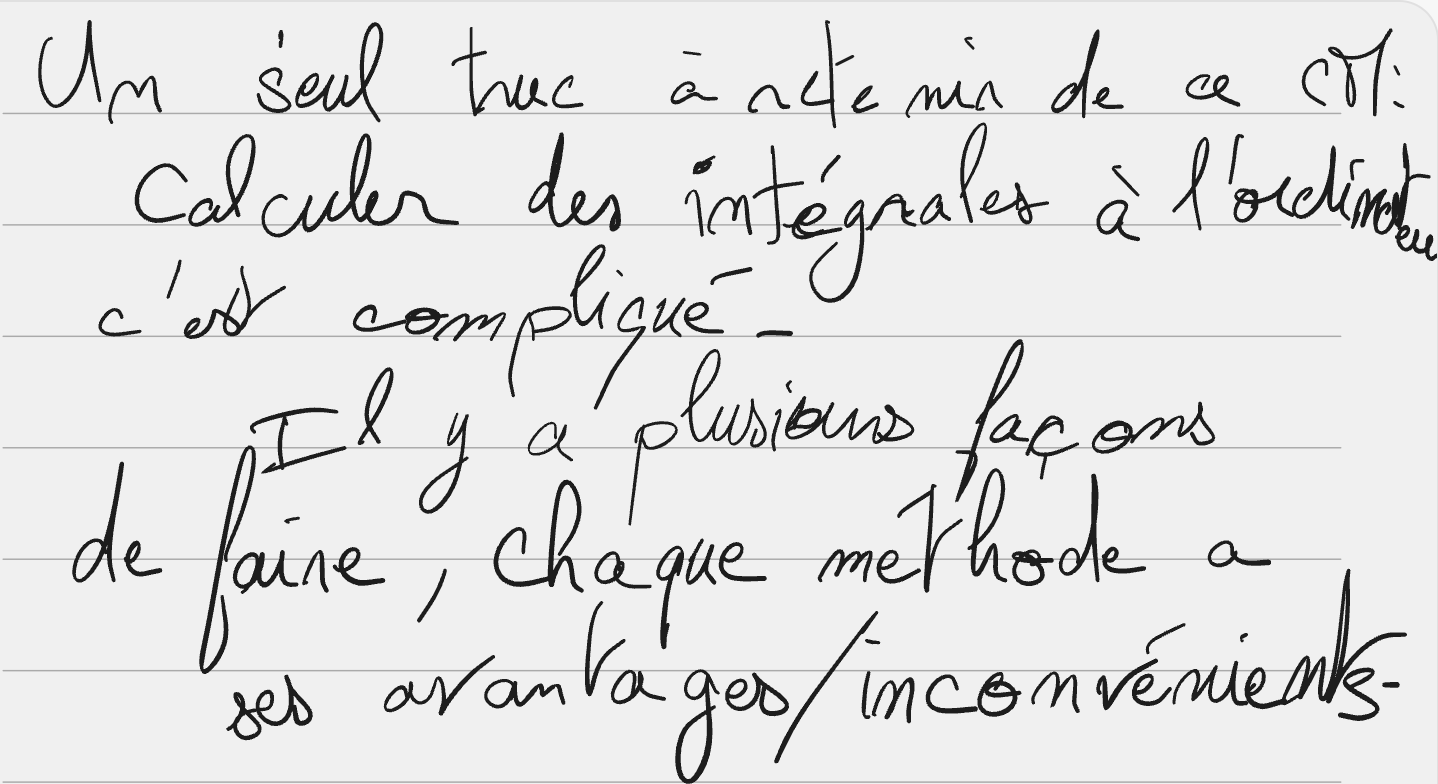 Un seul truc à retenir de ce CM:
Calculer des intégrales à l'ordinateur
c'est compliqué.
Il y a plusieurs façons
de faire, chaque methode a
ses avantages/inconvénients.